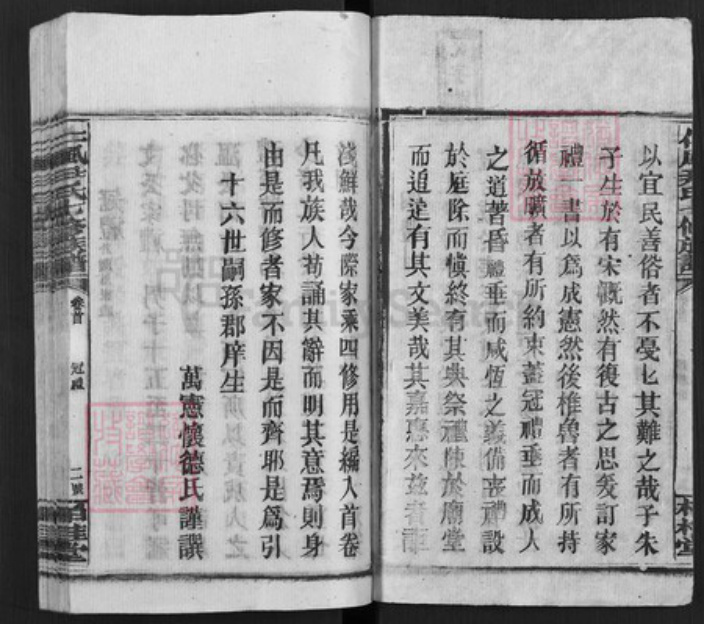 以宜民善俗者不憂乚其難之哉子朱
子生於有宋慨然有復古之思爰訂家
禮書以爲成憲然後椎魯者有所持
循放曠者有所約束蓋冠禮垂而成人
之道著昏禮垂而咸恆之義備喪禮設
於庭除而愼終有其典祭禮陳於廟堂
而追遠有其文美哉其嘉惠來茲者非
淺鮮哉今際家乘四修用是編入首卷
凡我族人苟誦其辭而明其意焉則身
由是而修者家不因是而齊耶是爲引
十六世嗣孫郡庠生
萬憲懷德氏謹譔
尹氏七修族譜
卷首
冠禮
二號
桂堂